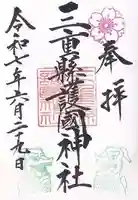 奉拝
三重縣護國神社
令和七年六月二十九日